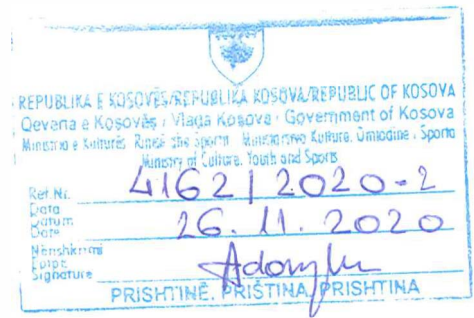 REPUBLIKA E KOSOVËS/REPUBLIKA KOSOVA/REPUBLIC OF KOSOVA
Qeveria e Kosovës / Vlada Kosova / Government of Kosova
Ministria e Kulturës Rinisë dhe Sportit Ministarstvo Kulture, Omladine i Sporta
Ministry of Culture, Youth and Sports
Ref.Nr. 4162/2020-2
Data
Datum
Date 26.11.2020
Nënshkrimi
Signature
PRISHTINË, PRIŠTINA, PRISHTINA